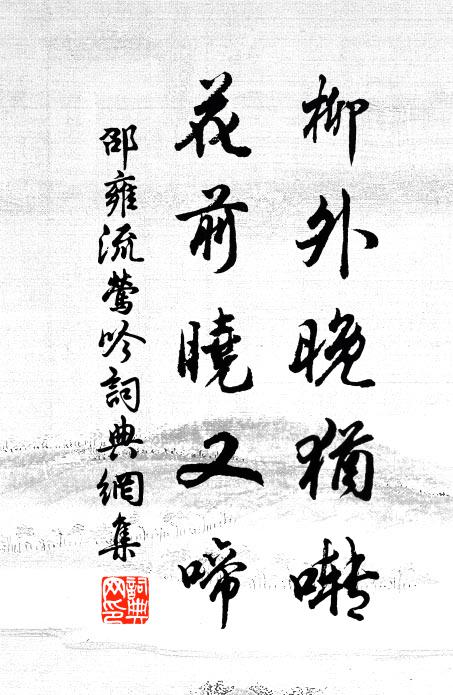 柳外晚猶囀
花前曉又啼
邵雍流鶯吟詞典網集
詞典网印